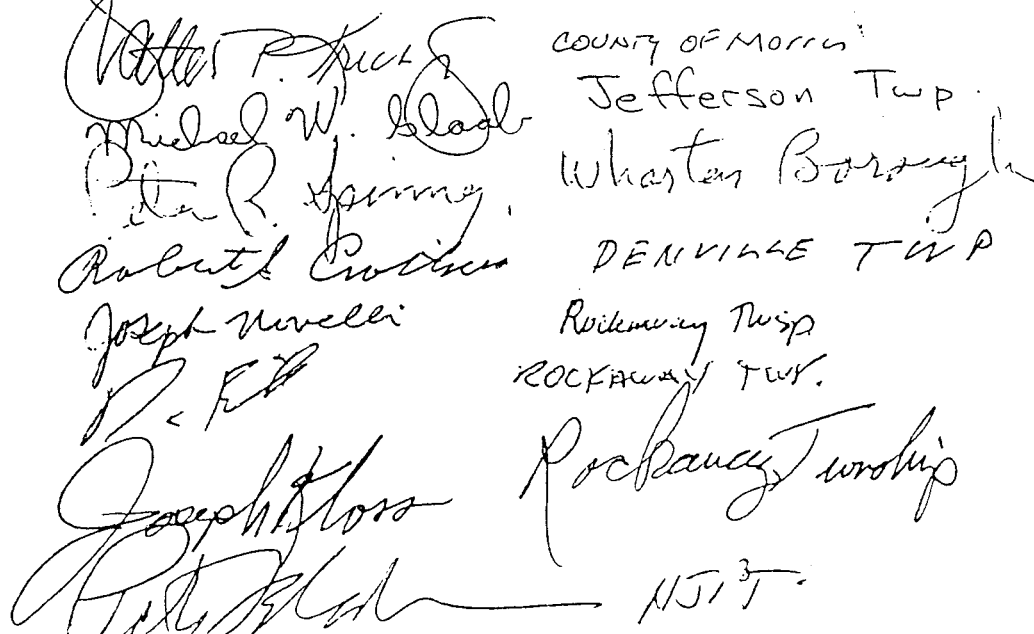 Walter P. Kruck COUNTY OF MORRIS
Michael W. Glaab Jefferson Twp.
Peter R. Wharton Borough
Robert DENVILLE TWP
Joseph Novelli Rockaway Twsp
ROCKAWAY TWP.
Joseph Kloss Rockaway Township
NJIT